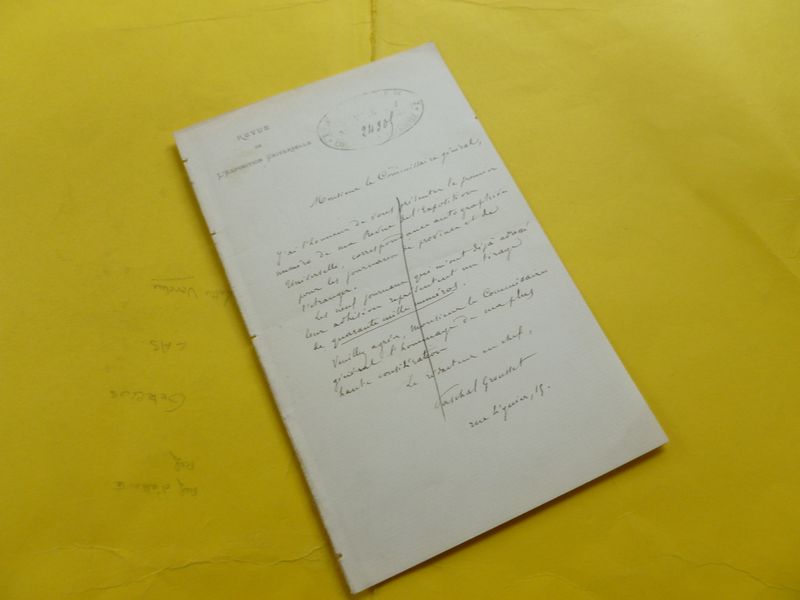 REVUE
DE
L'EXPOSITION UNIVERSELLE
24305
Monsieur le Commissaire général,
J'ai l'honneur de vous présenter le premier
numéro de ma Revue de l'Exposition
Universelle, correspondance autographiée
pour les journaux de province et de
l'étranger.
Les neuf journaux qui m'ont déjà adressé
leur adhésion représentent un tirage
de quarante mille numéros.
Veuillez agréer, Monsieur le Commissaire
général l'hommage de ma plus
haute considération
Le rédacteur en chef,
Paschal Grousset
rue 15.